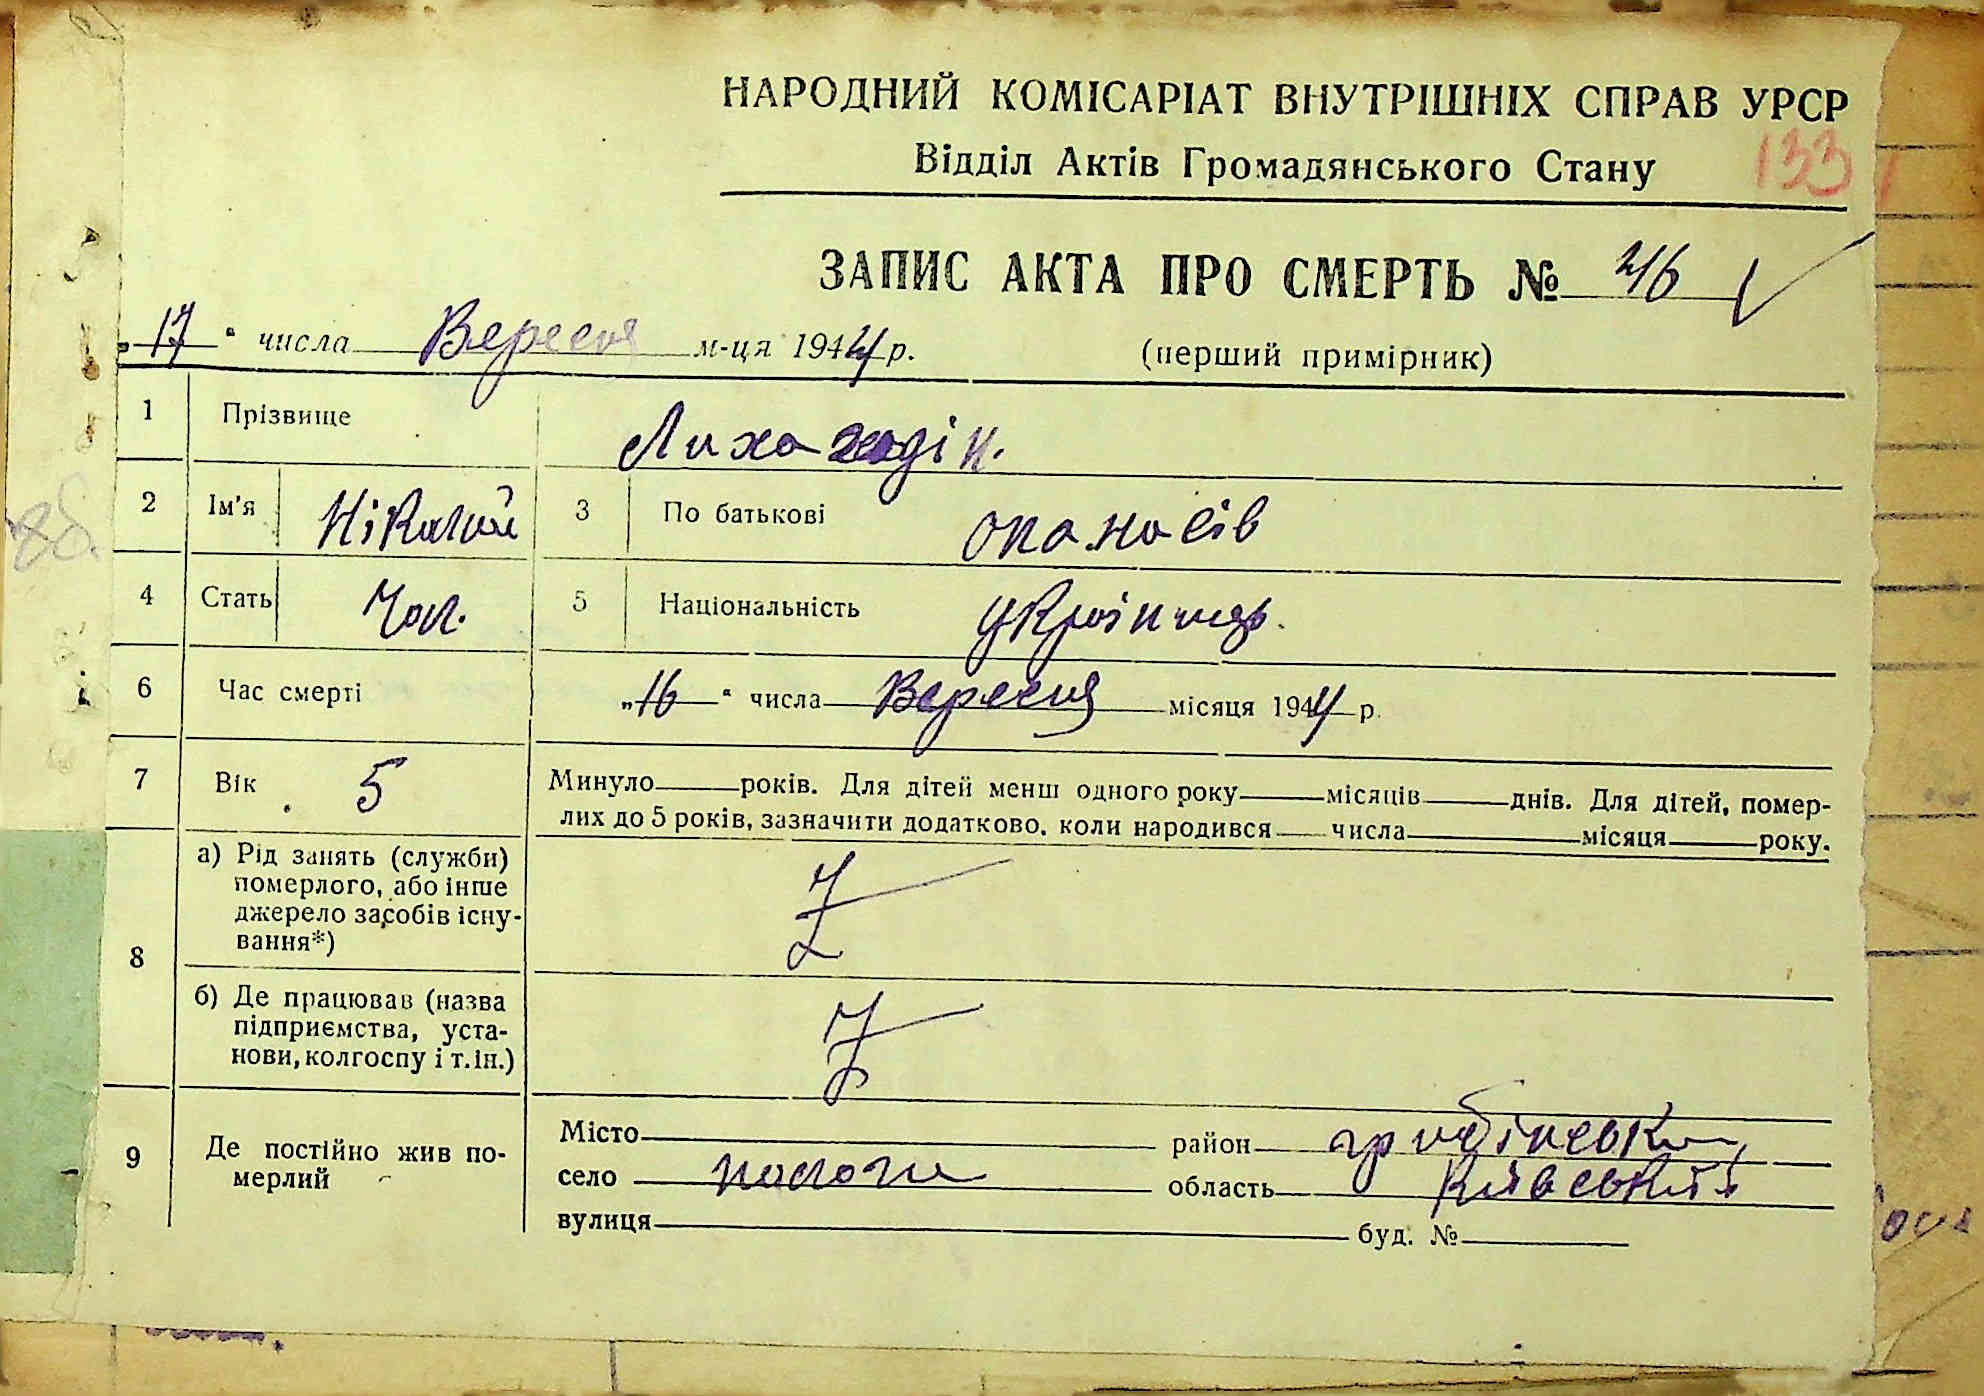 НАРОДНИЙ КОМІСАРІАТ ВНУТРІШНІХ СПРАВ УРСР
Відділ Актів Громадянського Стану 133
ЗАПИС АКТА ПРО СМЕРТЬ № 46
„17“ числа Вересня м-ця 1944 р.
(перший примірник)
1 Прізвище Лиха
2 Ім'я Ніколай 3 По батькові опанасів
4 Стать Чол. 5 Національність українець.
6 Час смерті „16“ числа Вересня місяця 1944 р.
7 Вік 5 Минуло років. Для дітей менш одного року місяців днів. Для дітей, помер-
лих до 5 років, зазначити додатково, коли народився числа місяця року.
8 а) Рід занять (служби)
померлого, або інше
джерело засобів існу-
вання*)
б) Де працював (назва
підприємства, уста-
нови, колгоспу і т. ін.)
9 Де постійно жив по-
мерлий
Місто район
село область Київський
вулиця буд. №